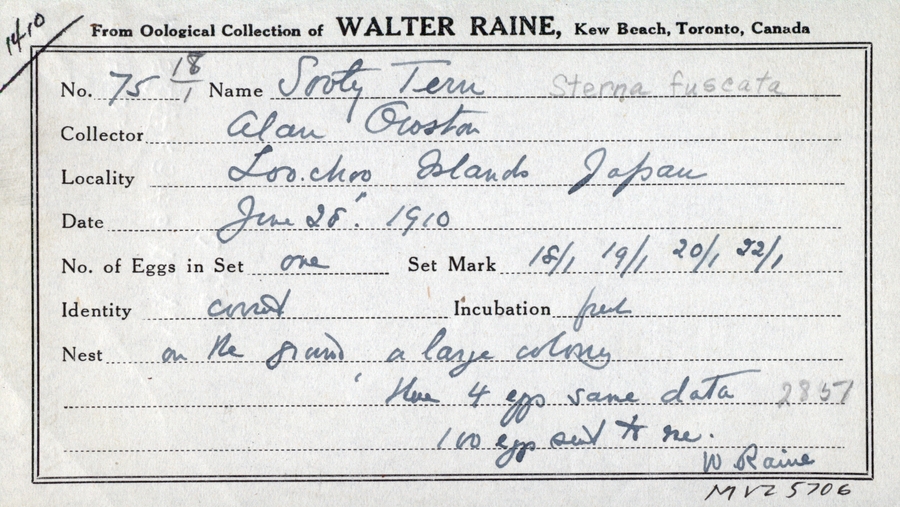 14-10
From Oological Collection of WALTER RAINE, Kew Beach, Toronto, Canada
No. 75 18/1 Name Sooty Tern Sterna fuscata
Collector Alan Owston
Locality Loo.choo Islands Japan
Date June 28". 1910
No. of Eggs in Set one Set Mark 18/1 19/1 20/1 22/1
Identity correct Incubation fresh
Nest on the ground a large colony
These 4 eggs same data 2857
100 eggs sent to me.
W Raine
MVZ 5706